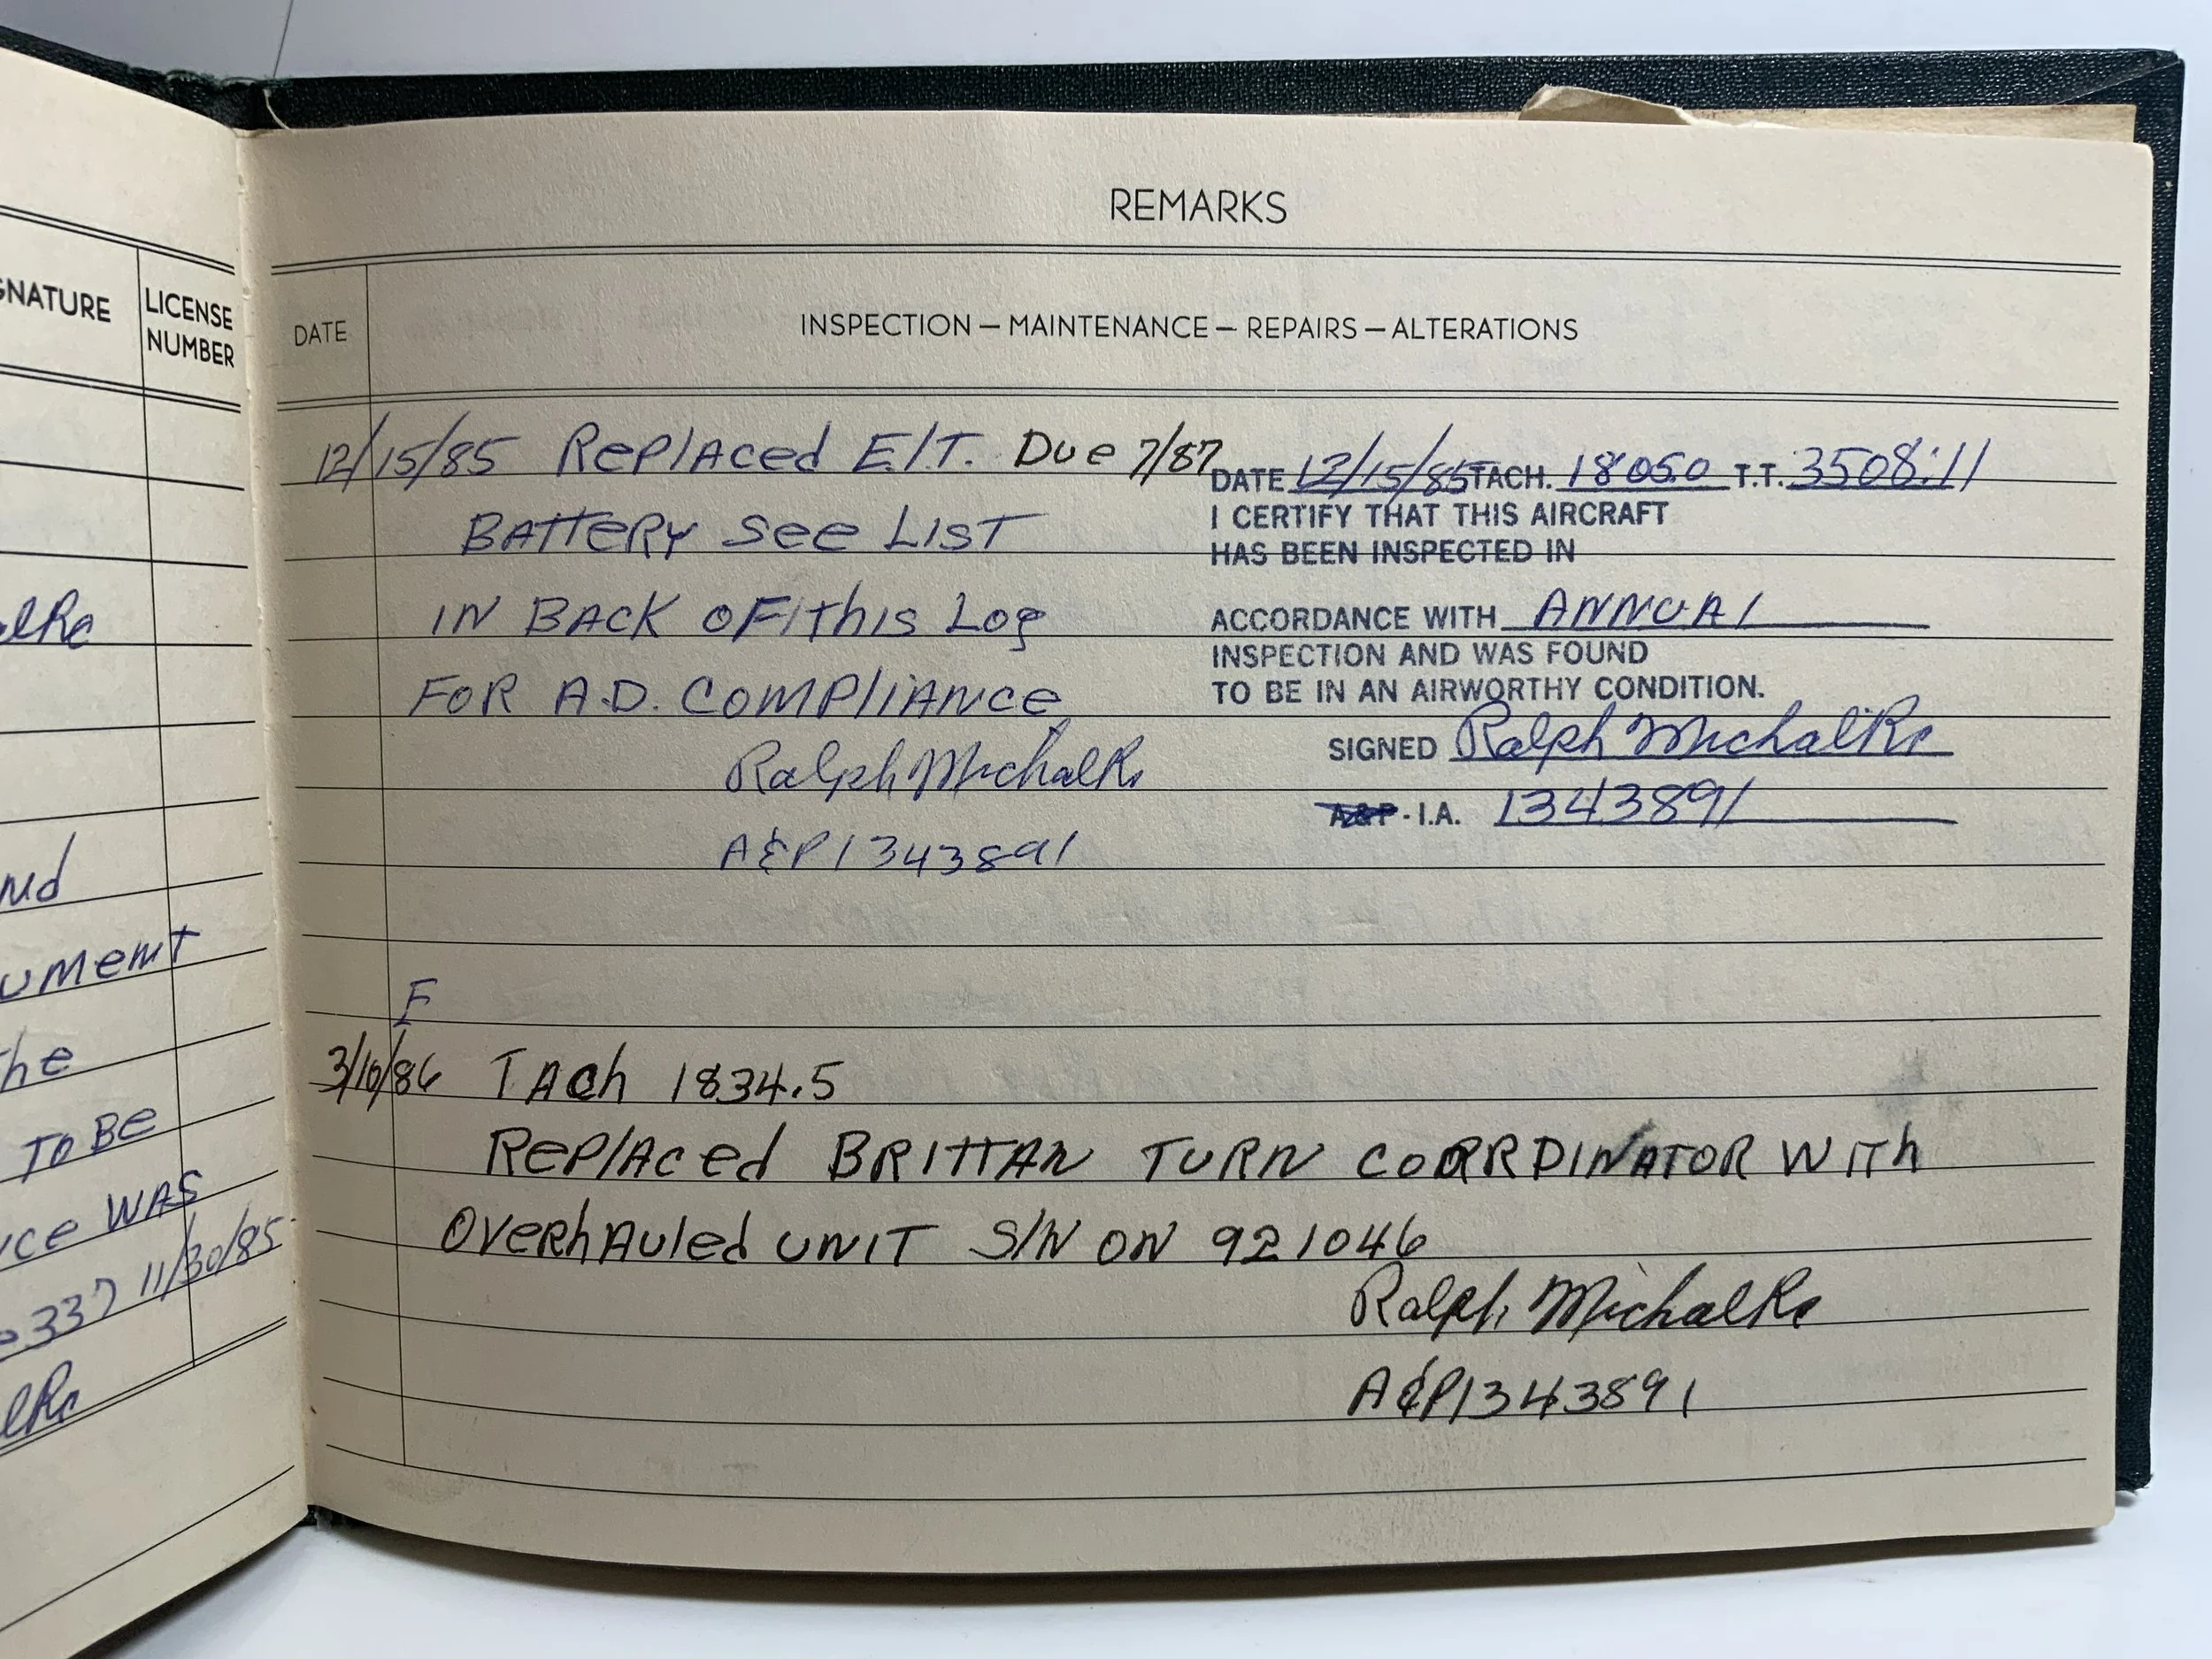 GNATURE
LICENSE
NUMBER
nd
ument
the
TO BE
ce WAS
337 11/30/85
REMARKS
DATE
INSPECTION — MAINTENANCE — REPAIRS — ALTERATIONS
12/15/85 Replaced E.I.T. Due 7/87
BATTERY See LIST
IN BACK OF this Log
FOR A.D. COMPliANce
Ralph Michalke
A&P 1343891
DATE 12/15/85 TACH. 1805.0 T.T. 3508:11
I CERTIFY THAT THIS AIRCRAFT
HAS BEEN INSPECTED IN
ACCORDANCE WITH ANNUAl
INSPECTION AND WAS FOUND
TO BE IN AN AIRWORTHY CONDITION.
SIGNED Ralph Michalke
A&P - I.A. 1343891
F
3/10/86 TAch 1834.5
RePlAced BRITTAN TURN COORRDINATOR WITh
OVeRhAuled UNIT S/N ON 921046
Ralph Michalke
A&P1343891